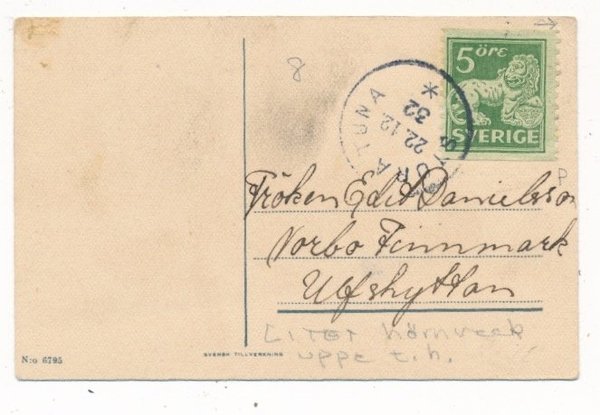 8
5 ÖRE
SVERIGE
STORA TUNA
22.12
32
P
Fröken Edit Danielsson
Norbo Finnmark
Ulfshyttan
LITET hörnveck
uppe t.h.
N:o 6795
SVENSK TILLVERKNING